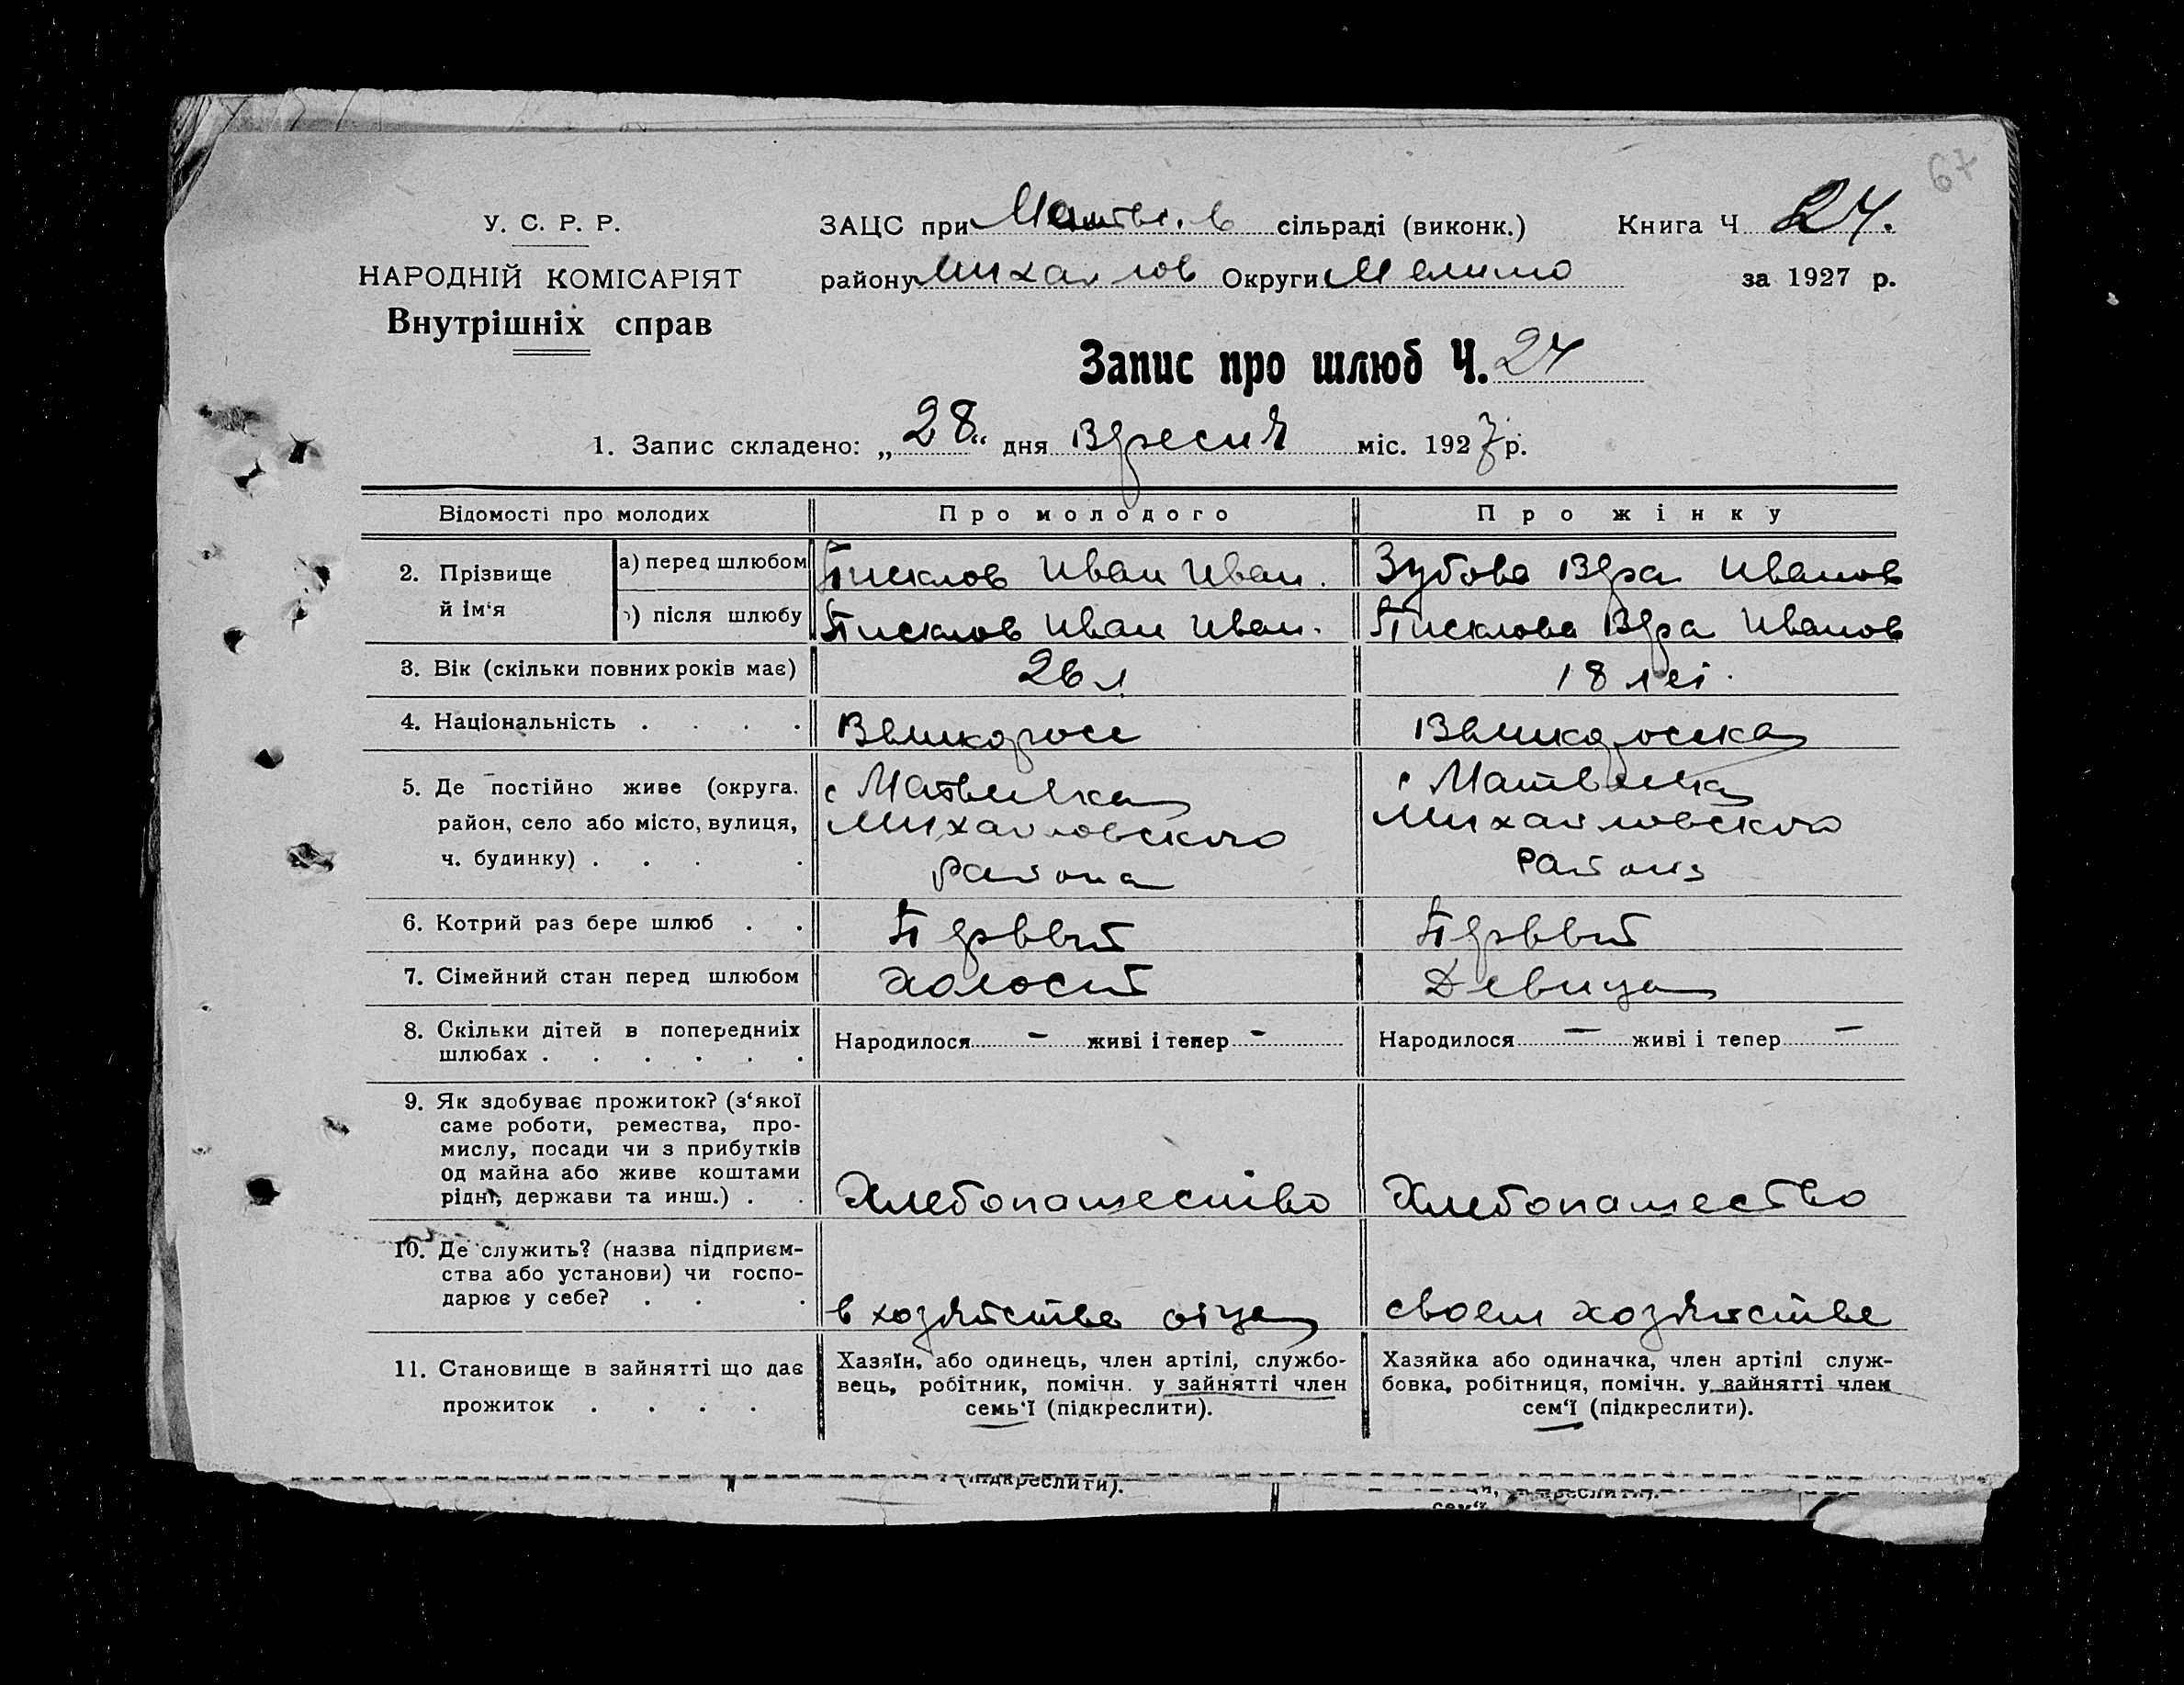 67
У. С. Р. Р.
НАРОДНІЙ КОМІСАРІЯТ
Внутрішніх справ
ЗАЦС при Матве. в сільраді (виконк.) Книга Ч 24.
району Михайлов Округи Мелито за 1927 р.
Запис про шлюб Ч. 24
1. Запис складено: „28“ дня Вересня міс. 1927 р.
Відомості про молодих Про молодого Про жінку
2. Прізвище й ім‘я
а) перед шлюбом Писклов Иван Иван. Зубова Вера Иванов
) після шлюбу Писклов Иван Иван. Писклова Вера Иванов
3. Вік (скільки повних років має) 26 л 18 лет.
4. Національність . . . . Великоросс Великоросска
5. Де постійно живе (округа. с Матвеевка с Матвеевка
район, село або місто, вулиця, Михайловского Михайловского
ч. будинку) . . . . района района
6. Котрий раз бере шлюб . . Первый Первый
7. Сімейний стан перед шлюбом Холост Девица
8. Скільки дітей в попередниіх Народилося – живі і тепер – Народилося – живі і тепер –
шлюбах . . . . . .
9. Як здобуває прожиток? (з‘якої
саме роботи, ремества, про-
мислу, посади чи з прибутків
од майна або живе коштами
рідні, держави та инш.) . . Хлебопашество Хлебопашество
10. Де служить? (назва підприєм-
ства або установи) чи госпо-
дарює у себе? . . . в хозяйстве отца своем хозяйстве
11. Становище в зайнятті що дає
прожиток . . . .
Хазяїн, або одинець, член артілі, службо-
вець, робітник, помічн. у зайнятті член
семь‘ї (підкреслити).
Хазяйка або одиначка, член артілі служ-
бовка, робітниця, помічн. у зайнятті член
сем‘ї (підкреслити).
(підкреслити).
сем‘ї